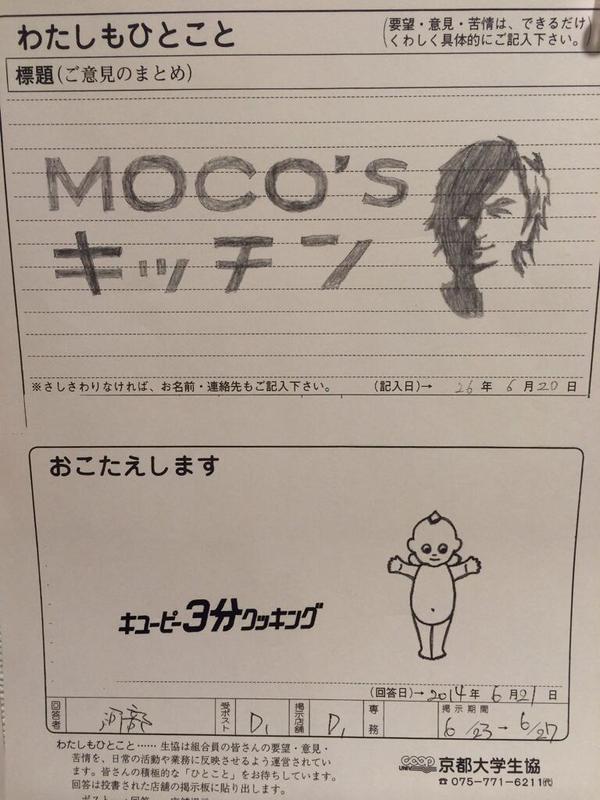 わたしもひとこと
(要望・意見・苦情は、できるだけ
くわしく具体的にご記入下さい。)
標題(ご意見のまとめ)
MOCO'S
キッチン
※さしさわりなければ、お名前・連絡先もご記入下さい。 (記入日)→ 26年 6月20日
おこたえします
キユーピー3分クッキング
(回答日)→ 2014年 6月21日
回答者 受ポスト D, 掲示店舗 D, 専務 掲示期間
6/23→6/27
わたしもひとこと…… 生協は組合員の皆さんの要望・意見・
苦情を、日常の活動や業務に反映させるよう運営されてい
ます。皆さんの積極的な「ひとこと」をお待ちしています。
回答は投書された店舗の掲示板に貼り出します。
UNIV. COOP 京都大学生協
☎075-771-6211㈹